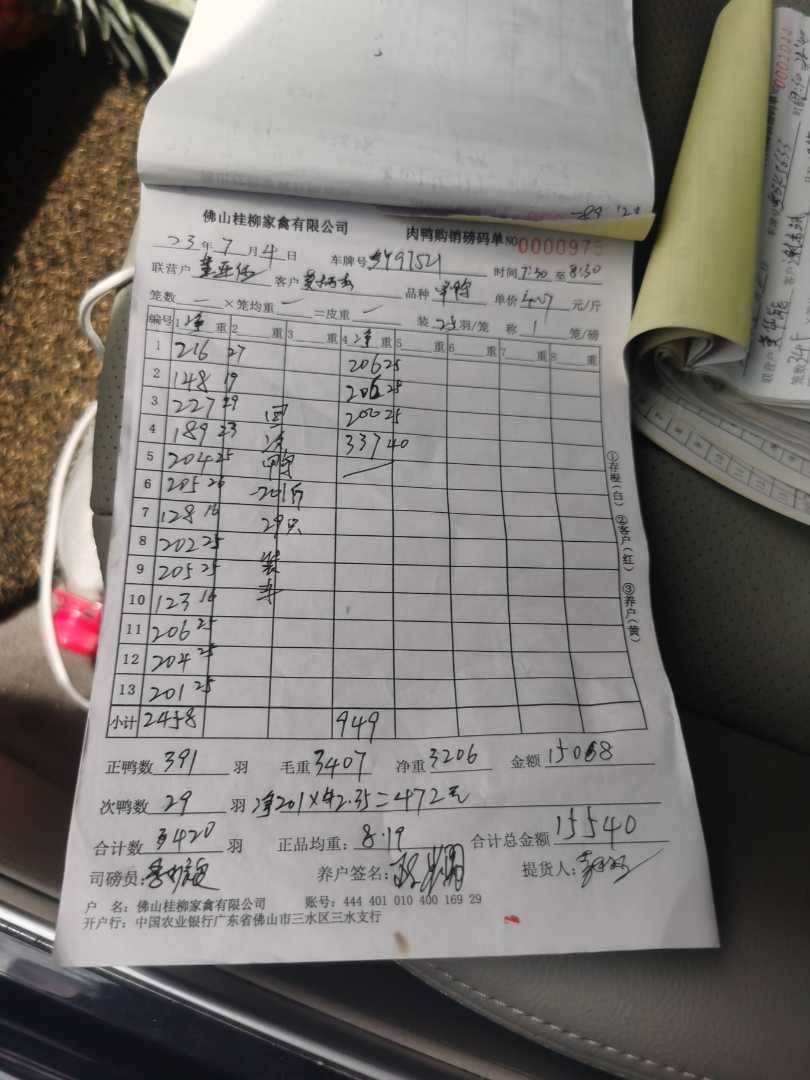 佛山桂柳家禽有限公司 肉鸭购销磅码单 NO 0000973
23年7月4日 车牌号 49752 时间 7:30 至 8:30
联营户 客户 品种 单价 4.7 元/斤
笼数 — ×笼均重 — =皮重 — 装 25 羽/笼 称 1 笼/磅
编号 1 净 重 2 重 3 重 4 净 重 5 重 6 重 7 重 8 重
1 216 27 206 25
2 148 19 206 25
3 227 29 200 25
4 189 23 337 40
5 204 25
6 205 26 -201斤
7 128 16 29只
8 202 25
9 205 25 装
10 123 14 车
11 206 25
12 204 25
13 201 25
小计 2458 949
①存根(白) ②客户(红) ③养户(黄)
正鸭数 391 羽 毛重 3407 净重 3206 金额 15068
次鸭数 29 羽 净201×2.35=472元
合计数 420 羽 正品均重: 8.19 合计总金额 15540
司磅员: 养户签名: 提货人:
户 名: 佛山桂柳家禽有限公司 账号: 444 401 010 400 169 29
开户行: 中国农业银行广东省佛山市三水区三水支行